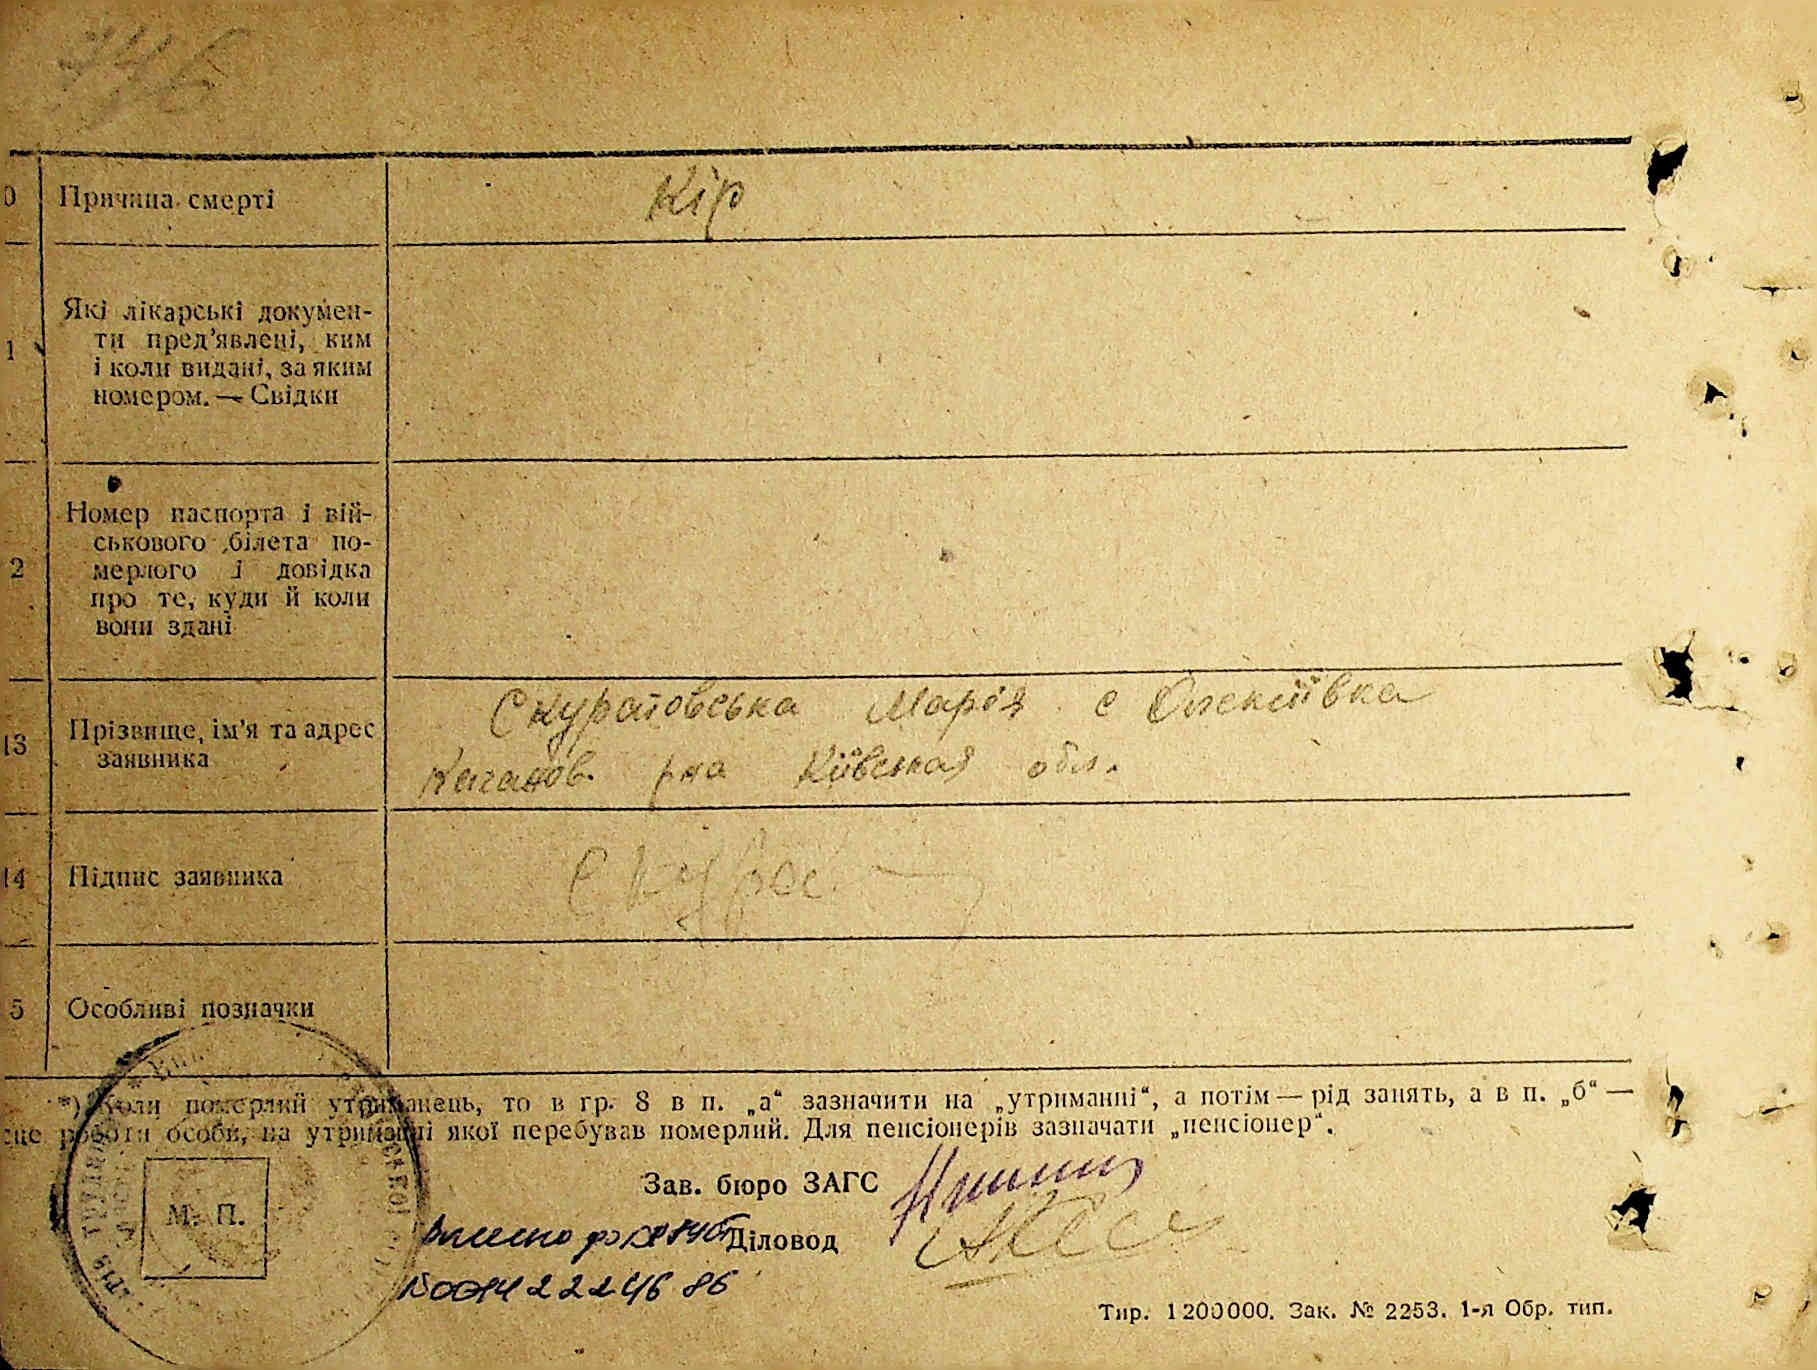 146
0 Причина смерті Кір
1 Які лікарські докумен-
ти пред’явлені, ким
і коли видані, за яким
номером. — Свідки
2 Номер паспорта і вій-
ськового білета по-
мерлого і довідка
про те, куди й коли
вони здані
Скуратовська Марія с Олексіївка
13 Прізвище, ім’я та адрес
заявника
Каганов. р-на Київская обл.
14 Підпис заявника Скурат
5 Особливі позначки
*) Коли померлий утриманець, то в гр. 8 в п. „а“ зазначити на „утриманні“, а потім — рід занять, а в п. „б“ —
сце роботи особи, на утриманні якої перебував померлий. Для пенсіонерів зазначати „пенсіонер“.
Зав. бюро ЗАГС
М. П.
Діловод
222446 86
Тир. 1200000. Зак. № 2253. 1-я Обр. тип.